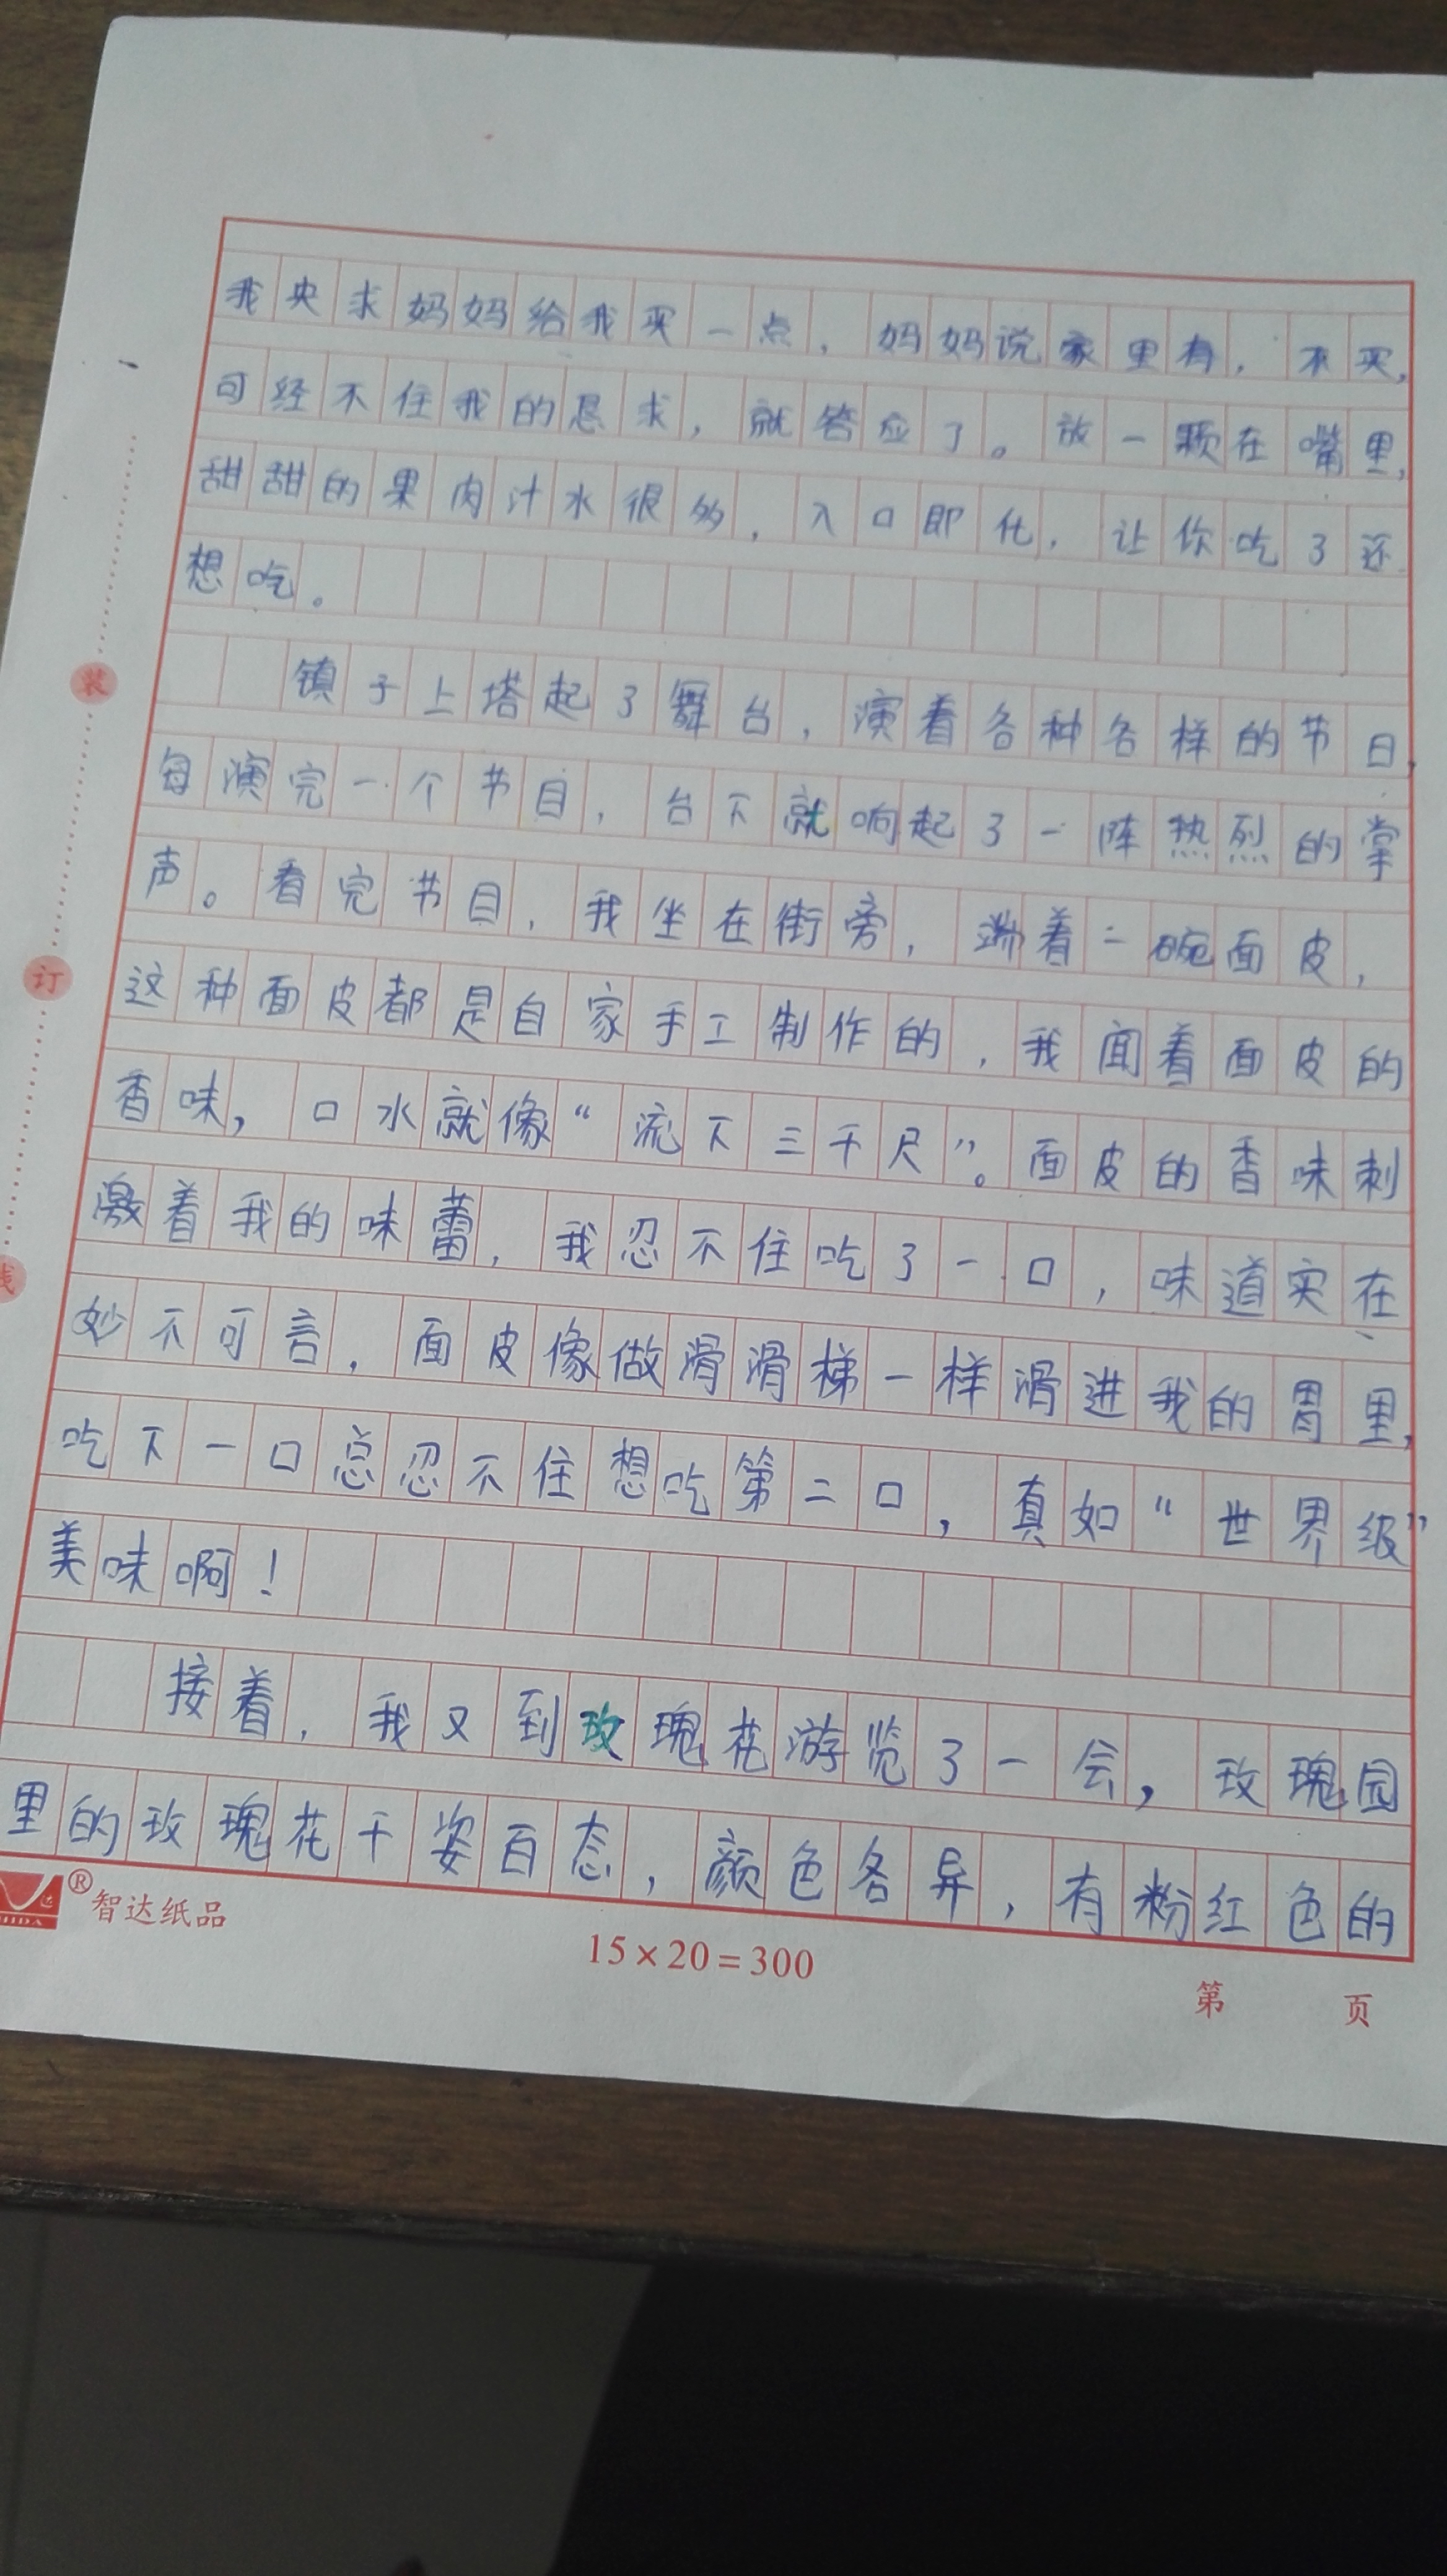 我央求妈妈给我买一点，妈妈说家里有，不买，
可经不住我的恳求，就答应了。放一颗在嘴里，
甜甜的果肉汁水很多，入口即化，让你吃了还
想吃。
镇子上塔起了舞台，演着各种各样的节目，
每演完一个节目，台下就响起了一阵热烈的掌
声。看完节目，我坐在街旁，端着一碗面皮，
这种面皮都是自家手工制作的，我闻着面皮的
香味，口水就像“流下三千尺”。面皮的香味刺
激着我的味蕾，我忍不住吃了一口，味道实在
妙不可言，面皮像做滑滑梯一样滑进我的胃里，
吃下一口总忍不住想吃第二口，真如“世界级”
美味啊！
接着，我又到玫瑰花游览了一会，玫瑰园
里的玫瑰花千姿百态，颜色各异，有粉红色的
装
订
线
®智达纸品
15×20=300
第 页